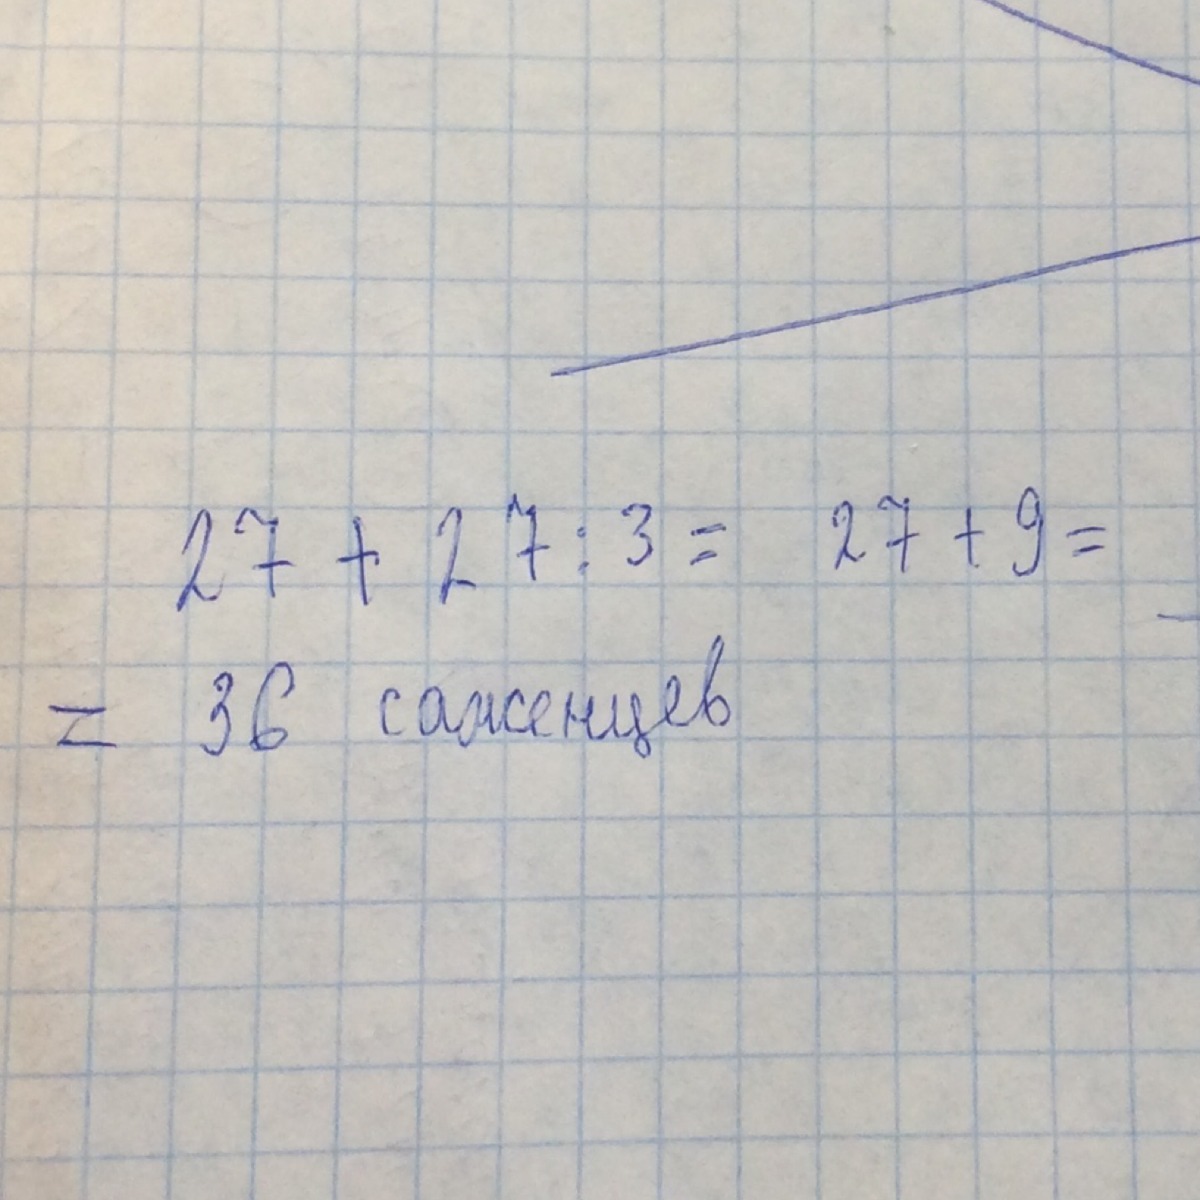 27 + 27 : 3 = 27 + 9 =
= 36 саженцев